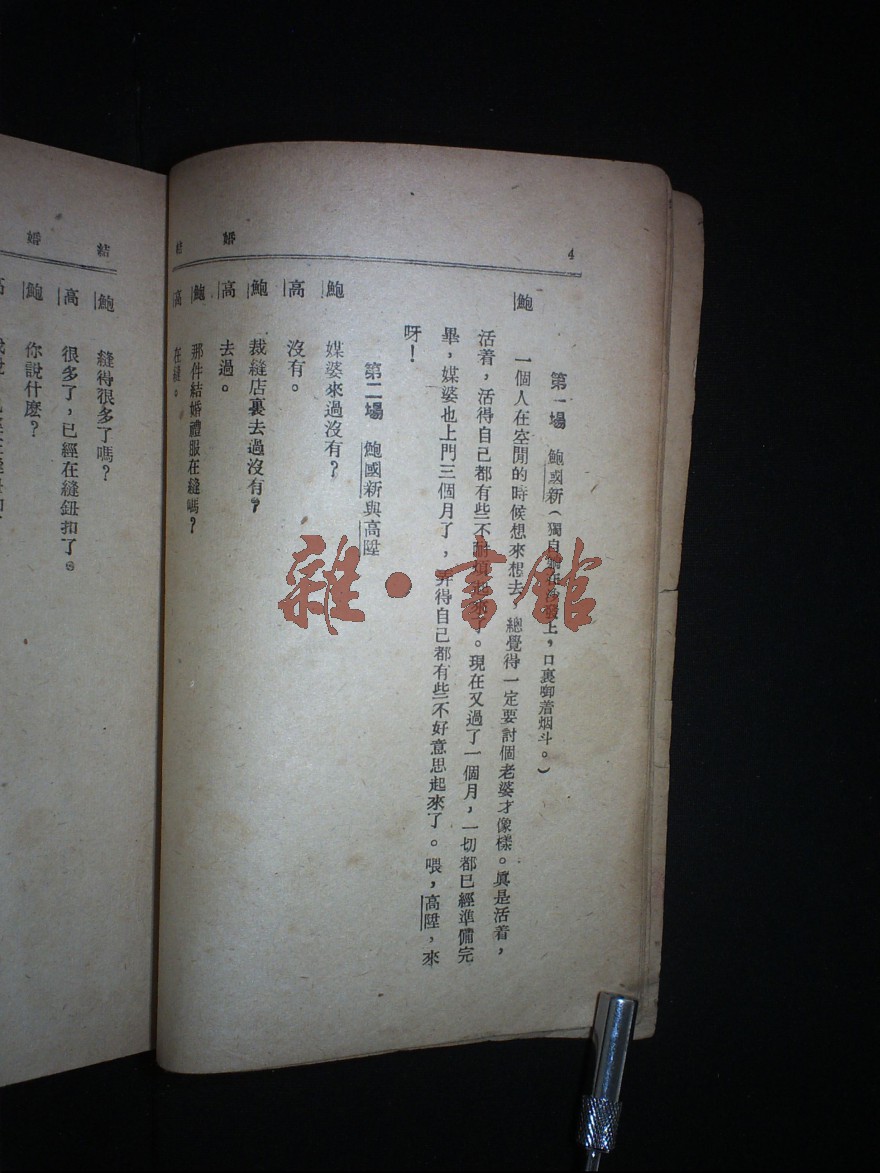 4
結 婚
第一場 鮑國新(獨自躺在沙發上,口裏啣着烟斗。)
鮑 一個人在空閒的時候想來想去,總覺得一定要討個老婆才像樣。眞是活着,
活着,活得自己都有些不耐煩起來了。現在又過了一個月,一切都已經準備完
畢,媒婆也上門三個月了,弄得自己都有些不好意思起來了。喂,高陞,來
呀!
第二場 鮑國新與高陞
鮑 媒婆來過沒有?
高 沒有。
鮑 裁縫店裏去過沒有?
高 去過。
鮑 那件結婚禮服在縫嗎?
高 在縫。
結 婚
鮑 縫得很多了嗎?
高 很多了,已經在縫鈕扣了。
鮑 你說什麽?
雜·書館